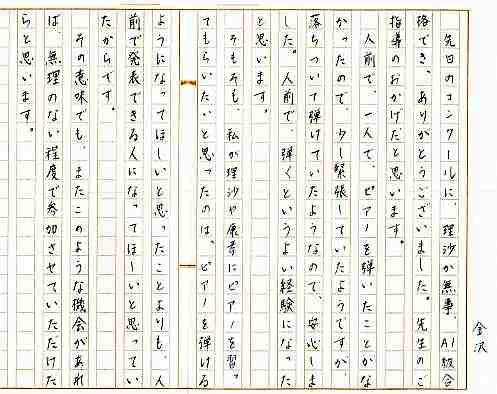 金沢
先日のコンクールに、理沙が無事、A1級合
格でき、ありがとうございました。先生のご
指導のおかげだと思います。
人前で、一人で、ピアノを弾いたことがな
かったので、少し緊張していたようですが、
落ちついて弾けていたようなので、安心しま
した。人前で、弾くというよい経験になった
と思います。
そもそも、私が理沙やにピアノを習っ
てもらいたいと思ったのは、ピアノを弾ける
ようになってほしいと思ったことよりも、人
前で発表できる人になってほしいと思ってい
たからです。
その意味でも、またこのような機会があれ
ば、無理のない程度で参加させていただけた
らと思います。